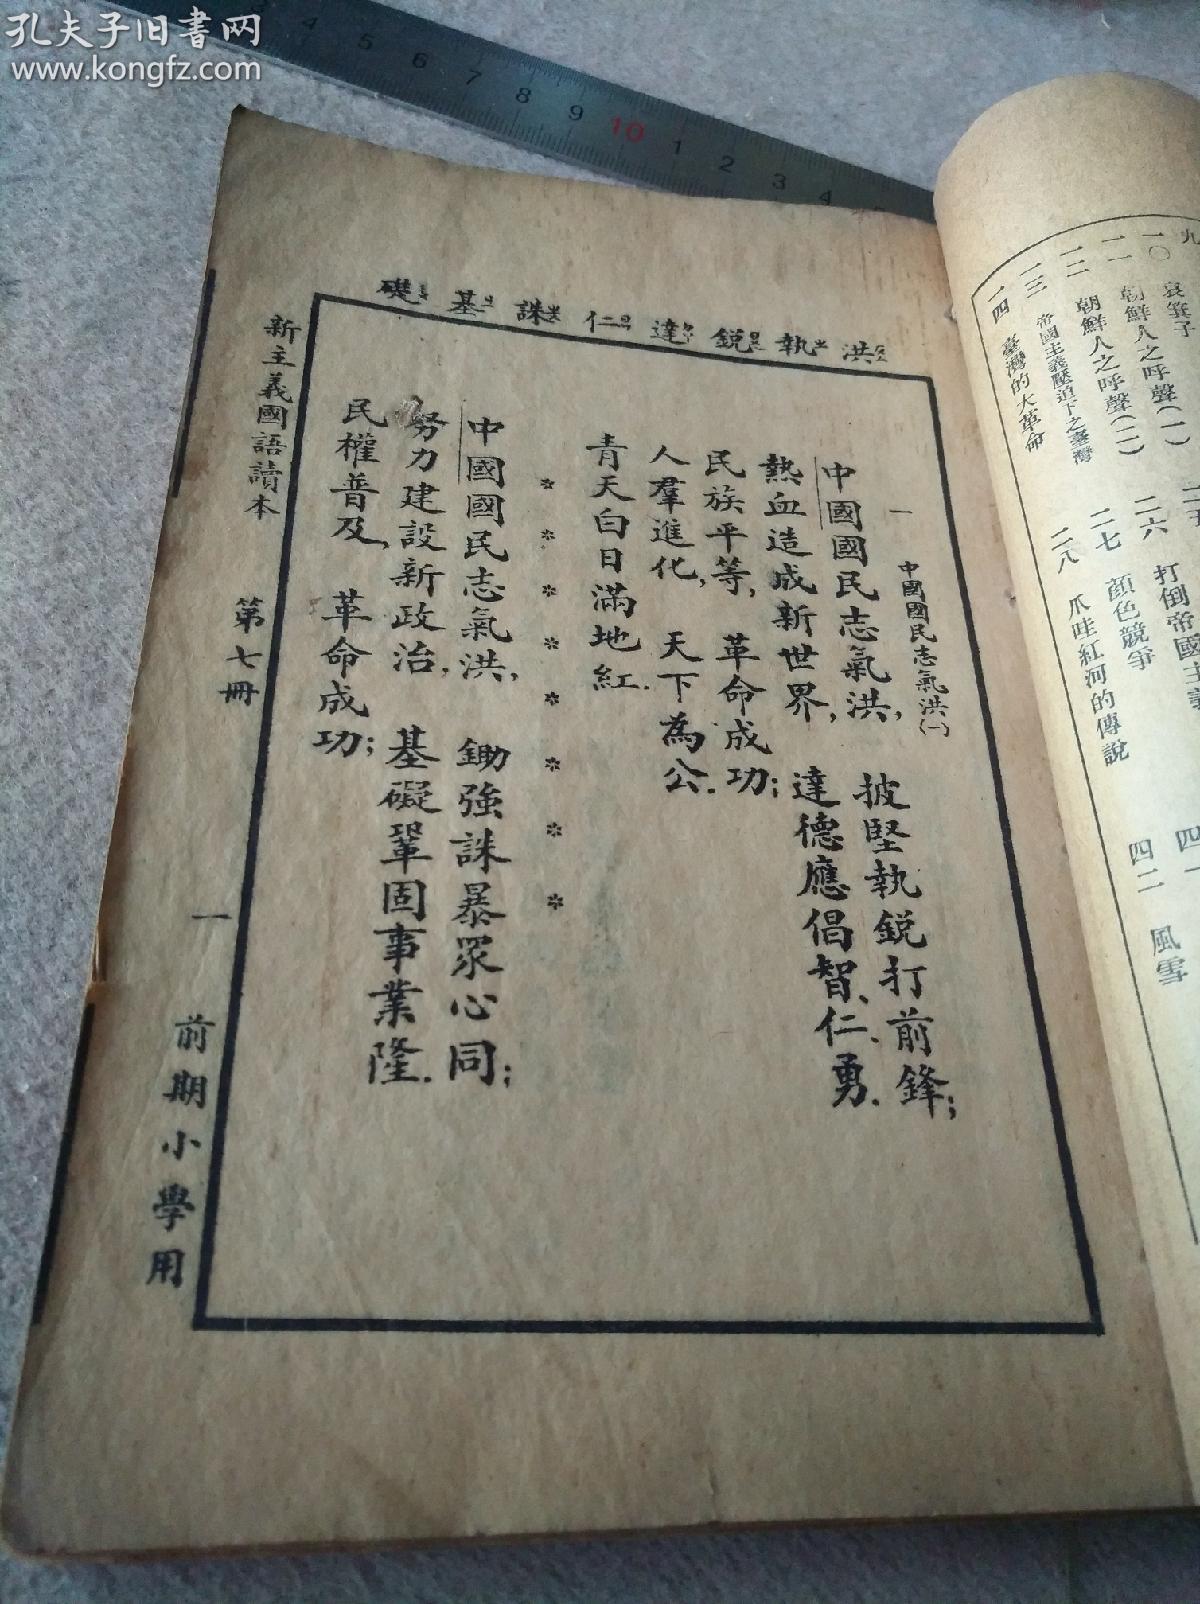 孔夫子旧书网
www.kongfz.com
3 4 5 6 7 8 9 10 1 2 3 4
九
一〇 哀箕子
一一 朝鮮人之呼聲(一)
一二 朝鮮人之呼聲(二)
一三 帝國主義壓迫下之臺灣
一四 臺灣的大革命
二五
二六 打倒帝國主義
二七 顏色競爭
二八 爪哇紅河的傳說
四一
四二 風雪
洪 執 銳 達 仁 誅 基 礎
一 中國國民志氣洪(一)
中國國民志氣洪, 披堅執銳打前鋒;
熱血造成新世界, 達德應倡智、仁、勇.
民族平等, 革命成功;
人羣進化, 天下為公.
青天白日滿地紅.
* * * * * * * * *
中國國民志氣洪, 鋤強誅暴眾心同;
努力建設新政治, 基礎鞏固事業隆.
民權普及, 革命成功;
新主義國語讀本 第七冊 一 前期小學用